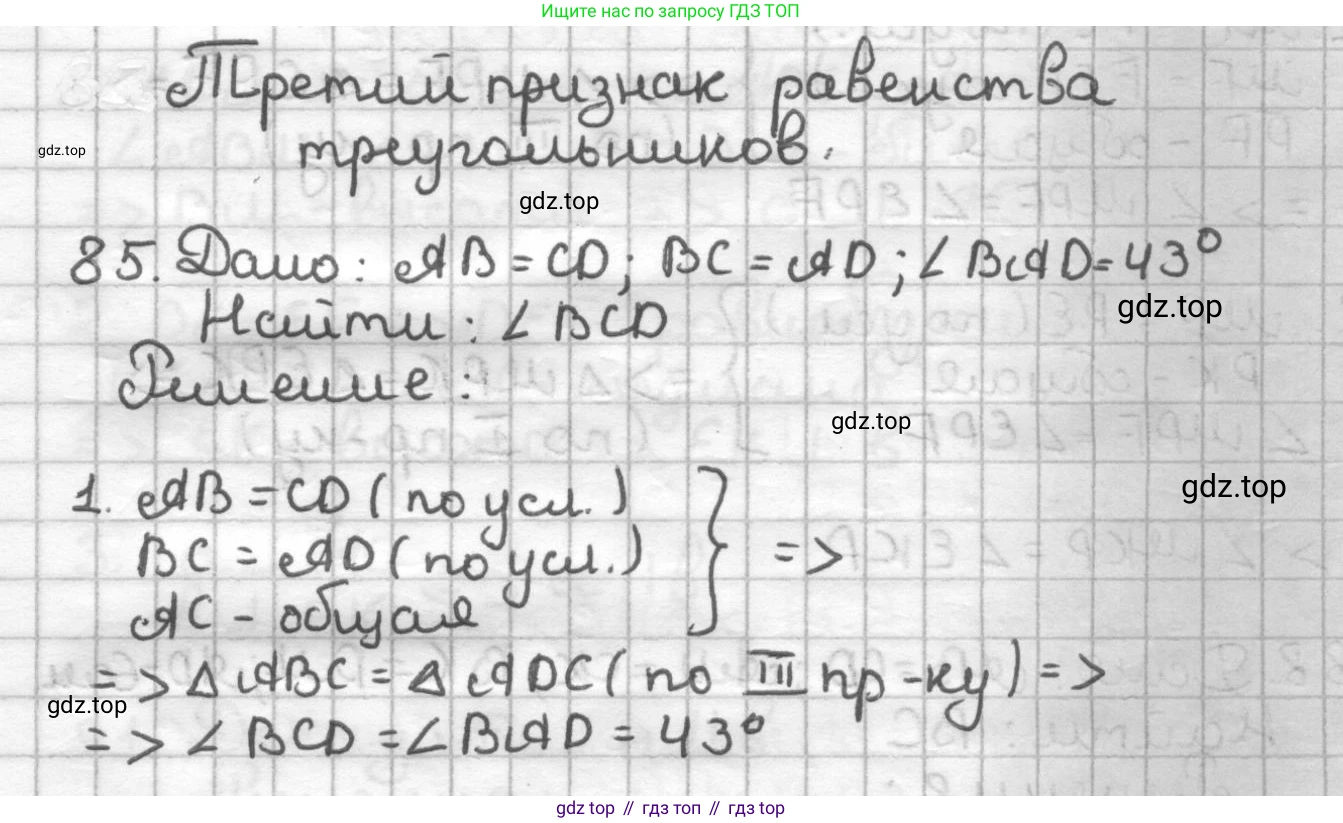 Ищите нас по запросу ГДЗ ТОП
Третий признак равенства
треугольников.
gdz.top
gdz.top
85. Дано: AB = CD; BC = AD; ∠BAD = 43°
gdz.top
Найти: ∠BCD
Решение:
gdz.top
gdz.top
1. AB = CD (по усл.)
BC = AD (по усл.) } =>
AC - общая
=> Δ ABC = Δ ADC (по III пр-ку) =>
gdz.top
=> ∠ BCD = ∠ BAD = 43°
gdz top // гдз топ // гдз top